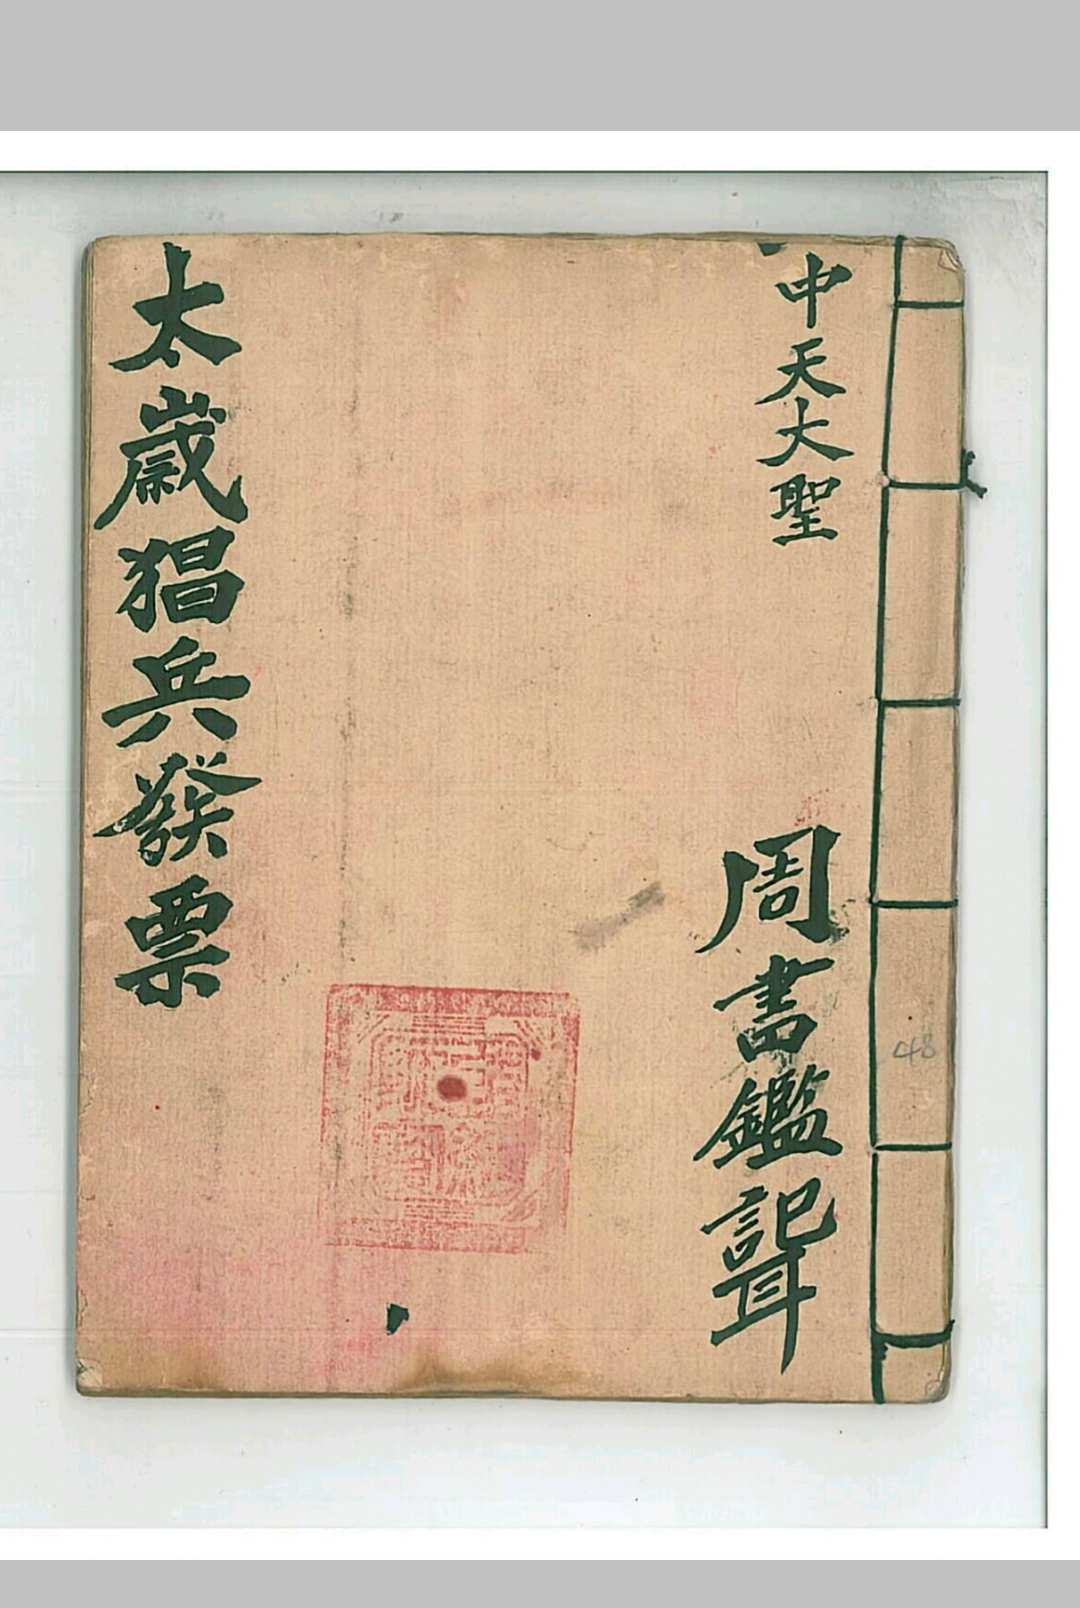 中天大聖
周書鑑記耳
太歲猖兵發票
48